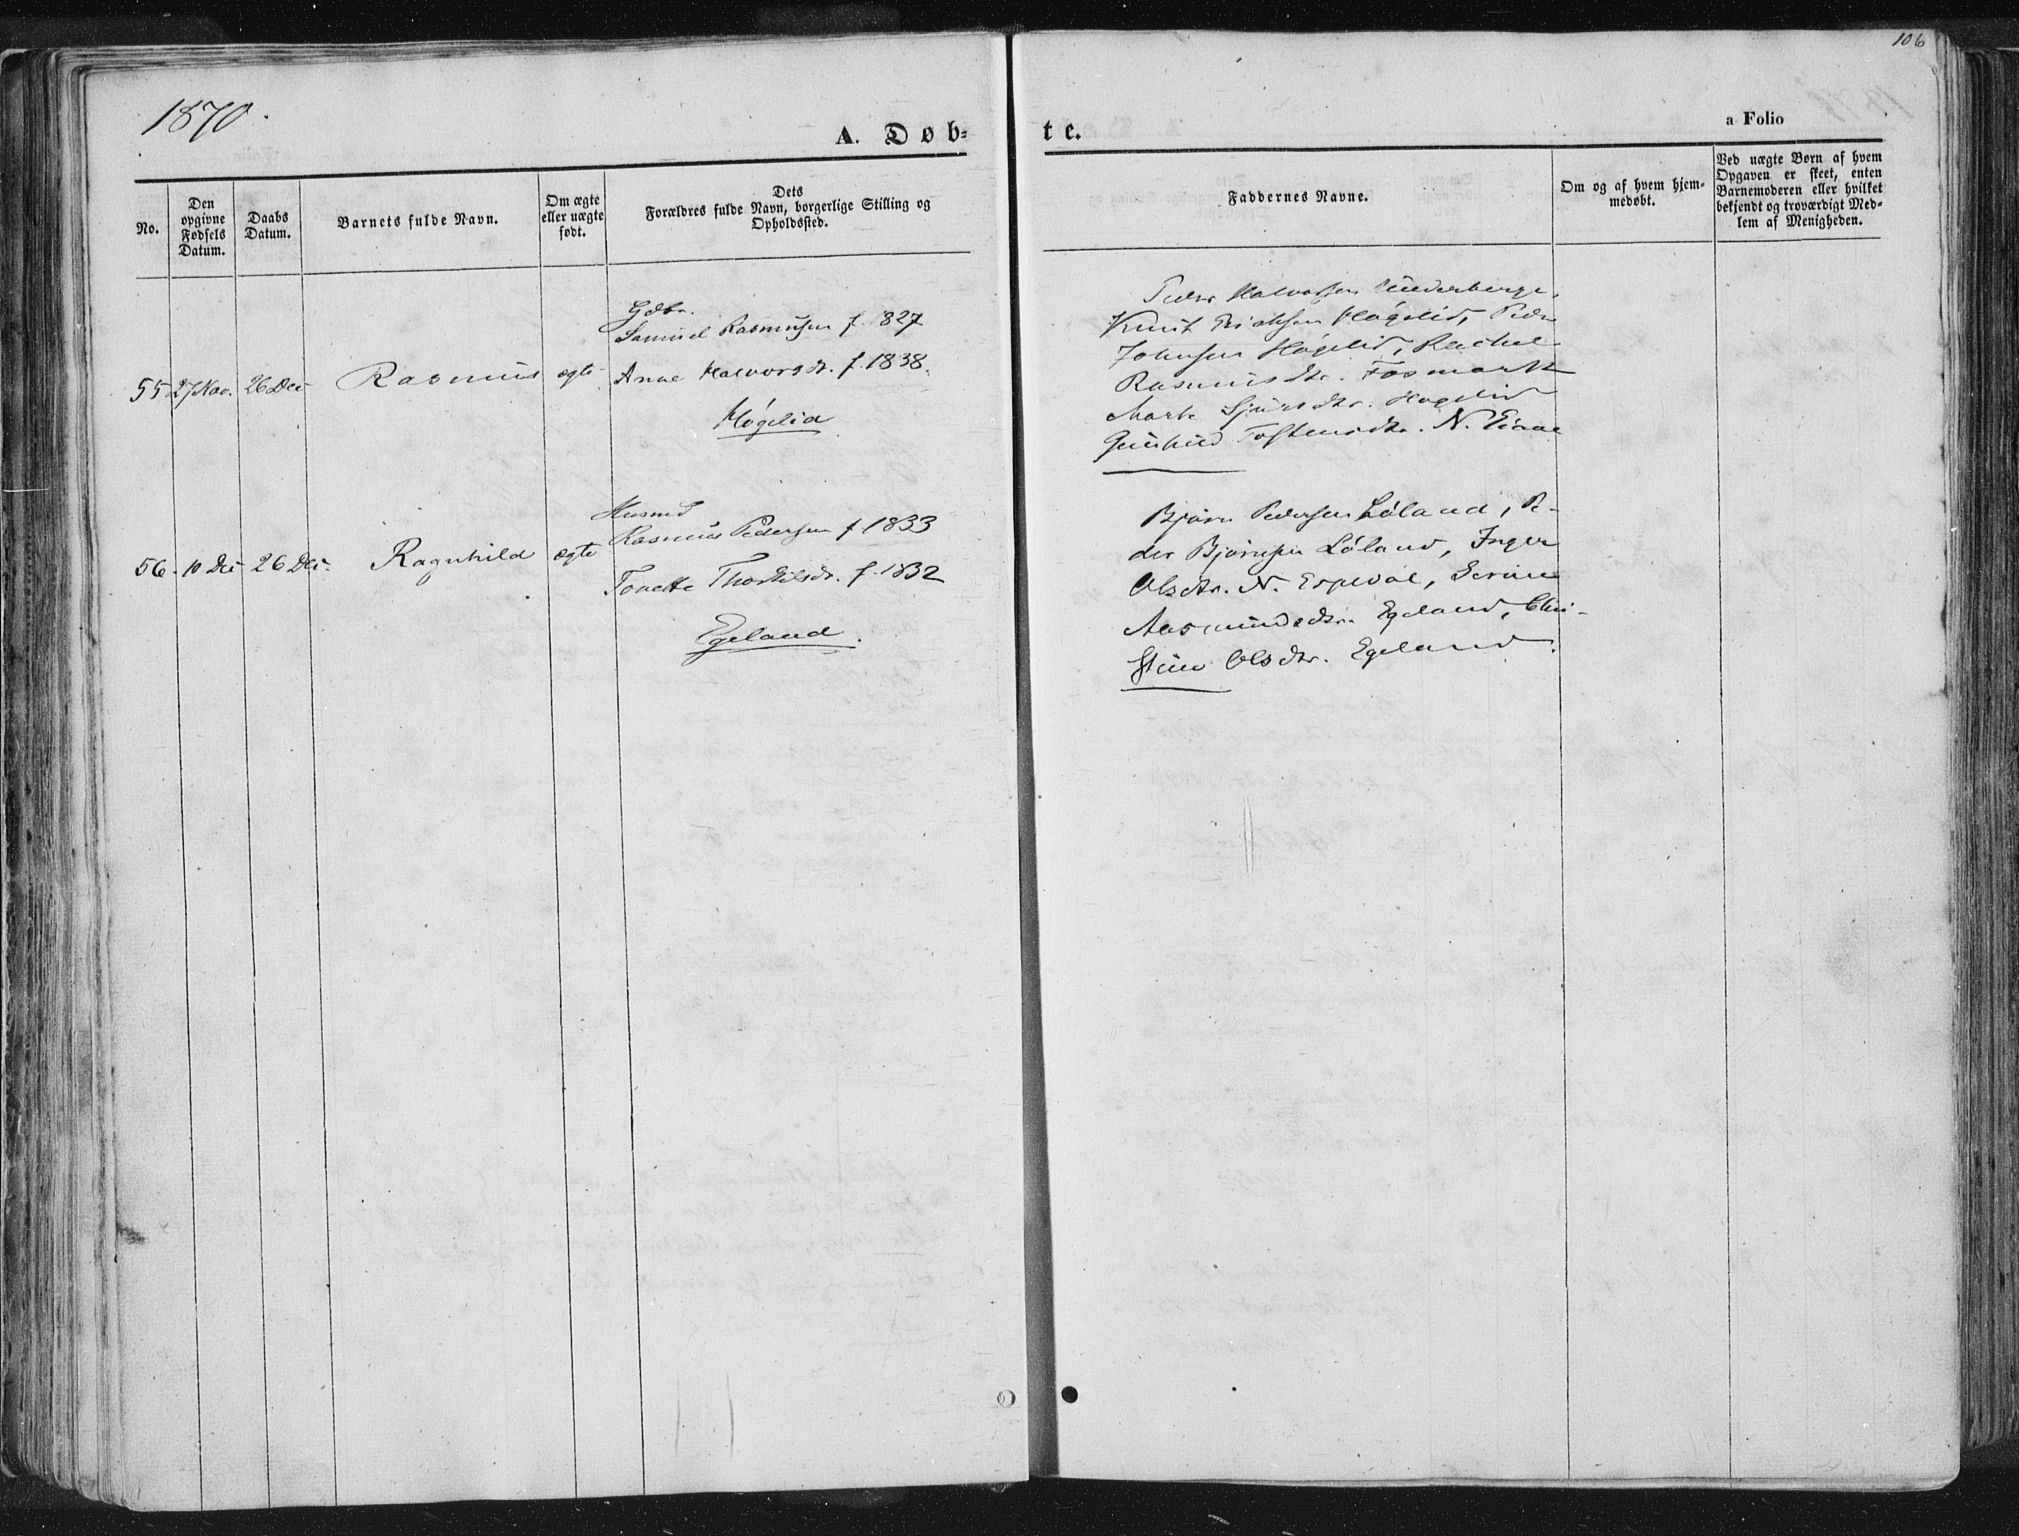 106
1870.
A. Døb-
te.
a Folio
No.
Den
opgivne
Fødsels
Datum.
Daabs
Datum.
Barnets fulde Navn.
Om ægte
eller uægte
født.
Dets
Forældres fulde Navn, borgerlige Stilling og
Opholdssted.
Faddernes Navne.
Om og af hvem hjem-
medøbt.
Ved uægte Børn af hvem
Opgaven er skeet, enten
Barnemoderen eller hvilket
bekjendt og troværdigt Med-
lem af Menigheden.
55 27 Nov. 26 Dec Rasmus ægte
Gdbr.
Samuel Rasmussen f. 1827
Anne Halvorsdr. f. 1838.
Høgelid
Peder Halvorsen
Knut Høgelid, Peder
Johnsen Høgelid, Rachel
Rasmusdtr. Fosmark
Marte Sjursdtr. Høgelid
Gunhild Tostensdtr. N. Eiane
56. 10 Dec 26 Dec. Ragnhild ægte
Husmd
Rasmus Pedersen f 1833
Tonette Thorkilsdr. f. 1832
Egeland.
Bjørn Pedersen Løland, Pe-
der Bjørnsen Løland, Inger
Olsdtr. N. Espedal, Serine
Aasmundsdtr. Egeland, Chri-
stine Olsdtr. Egeland.